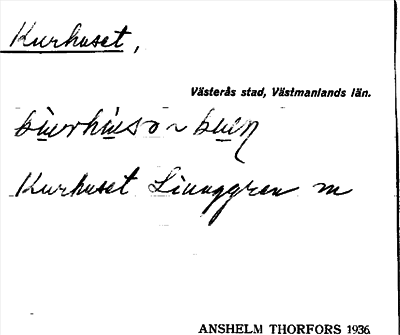 Kurhuset,
Västerås stad, Västmanlands län.
Kurhuset Linnggren m
ANSHELM THORFORS 1936.